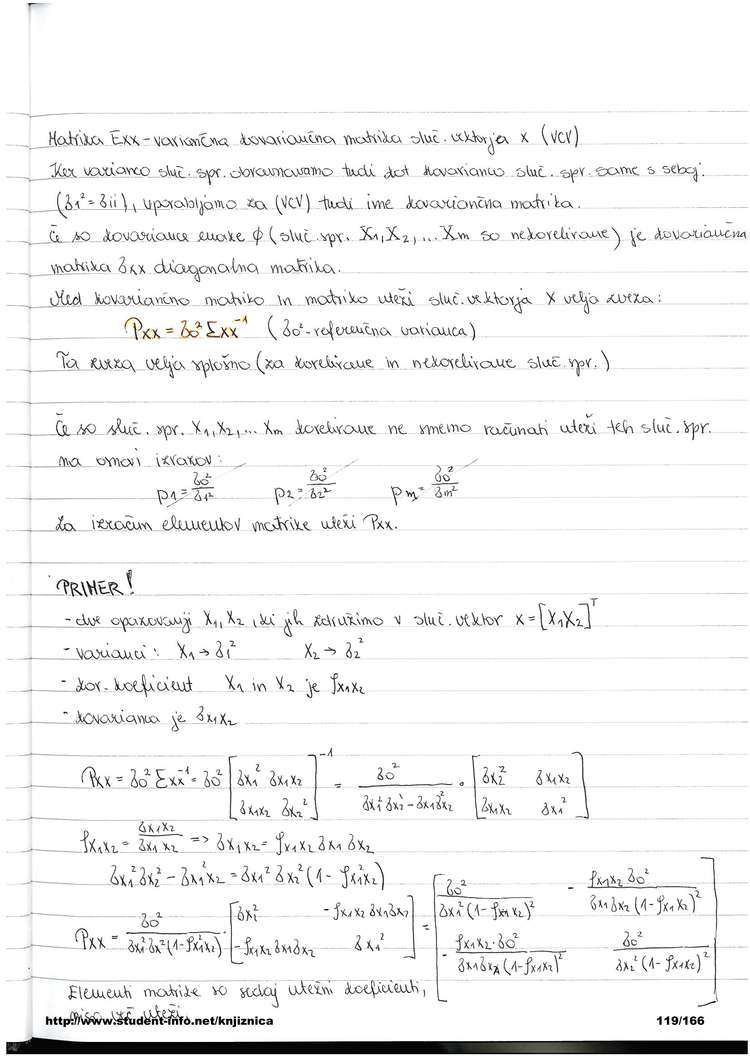 Matrika Σxx - variančna kovariančna matrika sluč. vektorja x (VCV)
Ker varianco sluč. spr. obravnavamo tudi kot kovarianco sluč. spr. same s seboj:
(σ1² = σii), uporabljamo za (VCV) tudi ime kovariančna matrika.
Če so kovariance enake φ (sluč. spr. X1, X2, ... Xm so nekorelirane) je kovariančna
matrika σxx diagonalna matrika.
Med kovariančno matriko in matriko uteži sluč. vektorja X velja zveza:
Pxx = σo² Σxx⁻¹ (σo² - referenčna varianca)
Ta zveza velja splošno (za korelirane in nekorelirane sluč. spr.)
Če so sluč. spr. X1, X2, ... Xm korelirane ne smemo računati uteži teh sluč. spr.
na osnovi izrazov:
p1 = σo²/σ1² p2 = σo²/σ2² pm = σo²/σm²
Za izračun elementov matrike uteži Pxx.
PRIMER!
- dve opazovanji X1, X2, ki jih združimo v sluč. vektor x = [X1 X2]ᵀ
- varianci: X1 → σ1² X2 → σ2²
- kor. koeficient X1 in X2 je ρx1x2
- kovarianca je σx1x2
Pxx = σo² Σxx⁻¹ = σo² [σx1² σx1x2; σx1x2 σx2²]⁻¹ = σo²/(σx1² σx2² - σx1σx2²) · [σx2² σx1x2; σx1x2 σx1²]
ρx1x2 = σx1x2/σx1x2 => σx1x2 = ρx1x2 σx1 σx2
σx1² σx2² - σx1x2² = σx1² σx2² (1 - ρx1x2²)
Pxx = σo²/(σx1² σx²(1-ρx1x2²)) · [σx1² -ρx1x2 σx1σx2; -ρx1x2 σx1σx2 σx1²] = [σo²/(σx1²(1-ρx1x2)²) - ρx1x2 σo²/(σx1σx2(1-ρx1x2)²); - ρx1x2·σo²/(σx1σx2(1-ρx1x2)²) σo²/(σx2²(1-ρx1x2)²)]
Elementi matrike so sedaj utežni koeficienti,
niso več uteži.
http://www.student-info.net/knjiznica 119/166